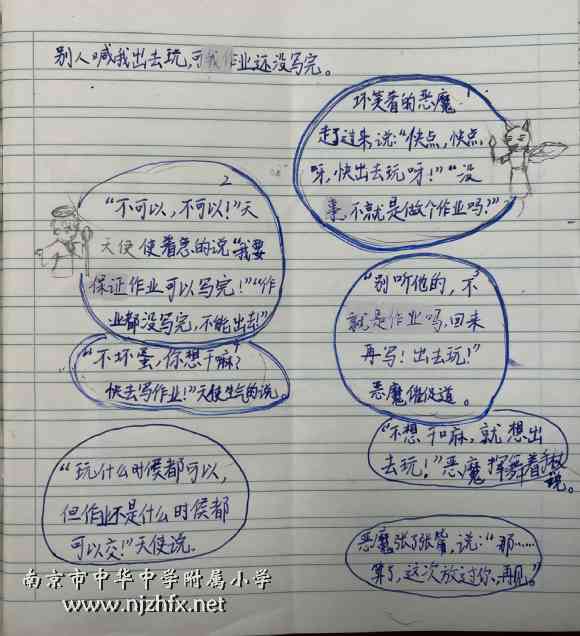 别人喊我出去玩,可我作业还没写完。
坏笑着的恶魔
走了过来,说:“快点,快点
呀,快出去玩呀!”“没
事,不就是做个作业吗?”
2
“不可以,不可以!”天
天使使着急的说“我要
保证作业可以写完!”“作
业都没写完,不能出去!”
“别听他的,不
就是作业吗,回来
再写!出去玩!”
恶魔催促道。
“不坏蛋,你想干嘛?
快去写作业!”天使生气的说。
“不想干麻,就想出
去玩!”恶魔挥舞着手杖
说。
“玩什么时侯都可以,
但作业不是什么时侯都
可以交!”天使说。
恶魔张了张嘴,说:“那……
算了,这次放过你,再见。”
南京市中华中学附属小学
www.njzhfx.net